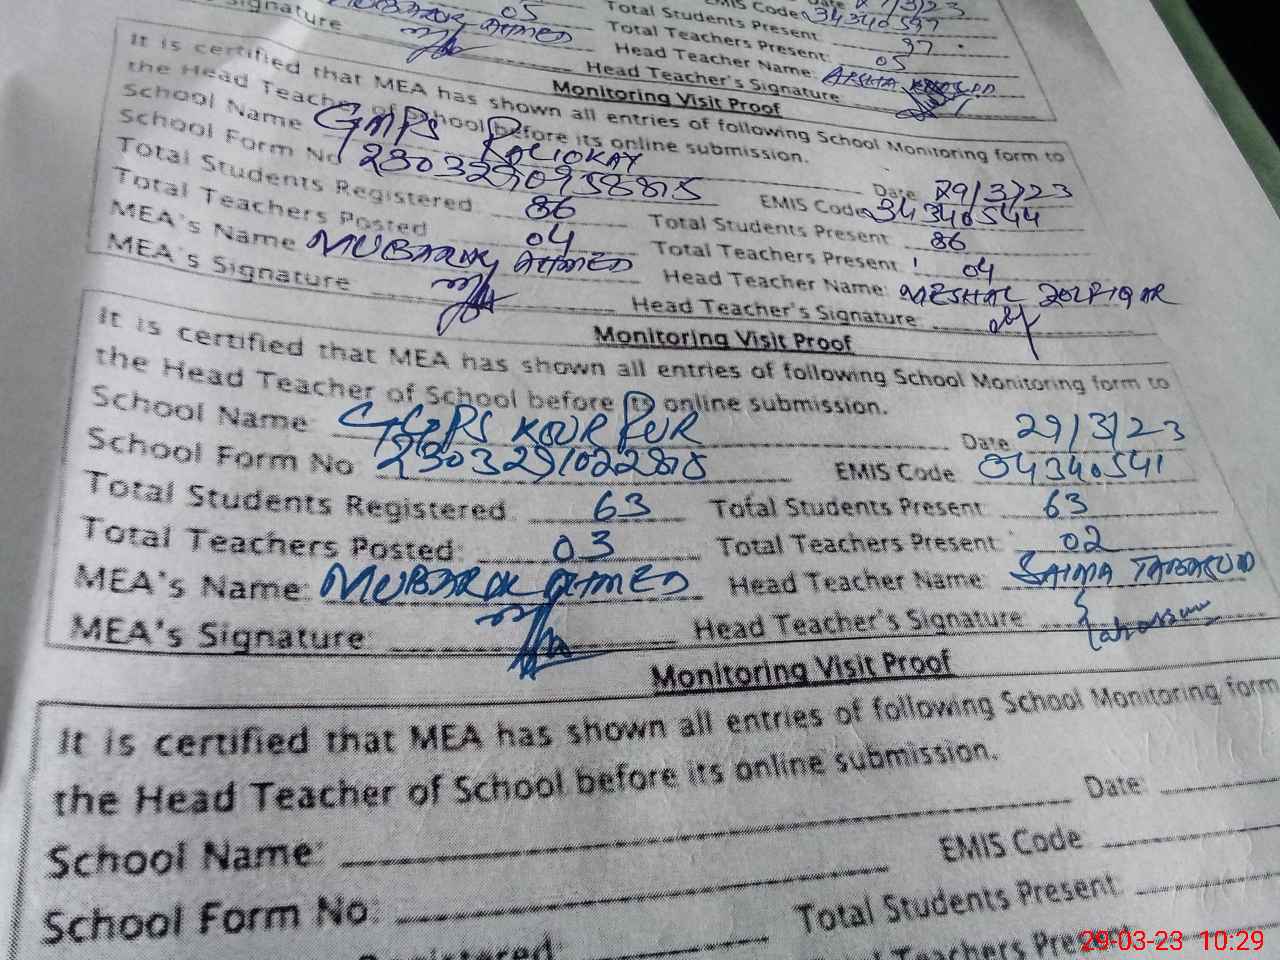 05 Total Students Present 37
MUBARAK AHMED Total Teachers Present: 05
Signature Head Teacher Name: ARSHA
Head Teacher's Signature
EMIS Code 34340537
Monitoring Visit Proof
It is certified that MEA has shown all entries of following School Monitoring form to
the Head Teacher of School before its online submission.
School Name GMPS Date 29/3/23
School Form No 2303290958875 EMIS Code 34340544
Total Students Registered 86 Total Students Present 86
Total Teachers Posted 04 Total Teachers Present 04
MEA's Name MUBARAK AHMED Head Teacher Name: ZOLFIQAR
MEA's Signature Head Teacher's Signature
Monitoring Visit Proof
It is certified that MEA has shown all entries of following School Monitoring form to
the Head Teacher of School before its online submission.
School Name: GGPS KOUR PUR Date 29/3/23
School Form No EMIS Code 04340541
Total Students Registered 63 Total Students Present 63
Total Teachers Posted: 03 Total Teachers Present 02
MEA's Name: MUBARAK AHMED Head Teacher Name: SAIMA
MEA's Signature Head Teacher's Signature
Monitoring Visit Proof
It is certified that MEA has shown all entries of following School Monitoring form
the Head Teacher of School before its online submission.
School Name: Date:
School Form No: EMIS Code
Total Students Present
29-03-23 10:29